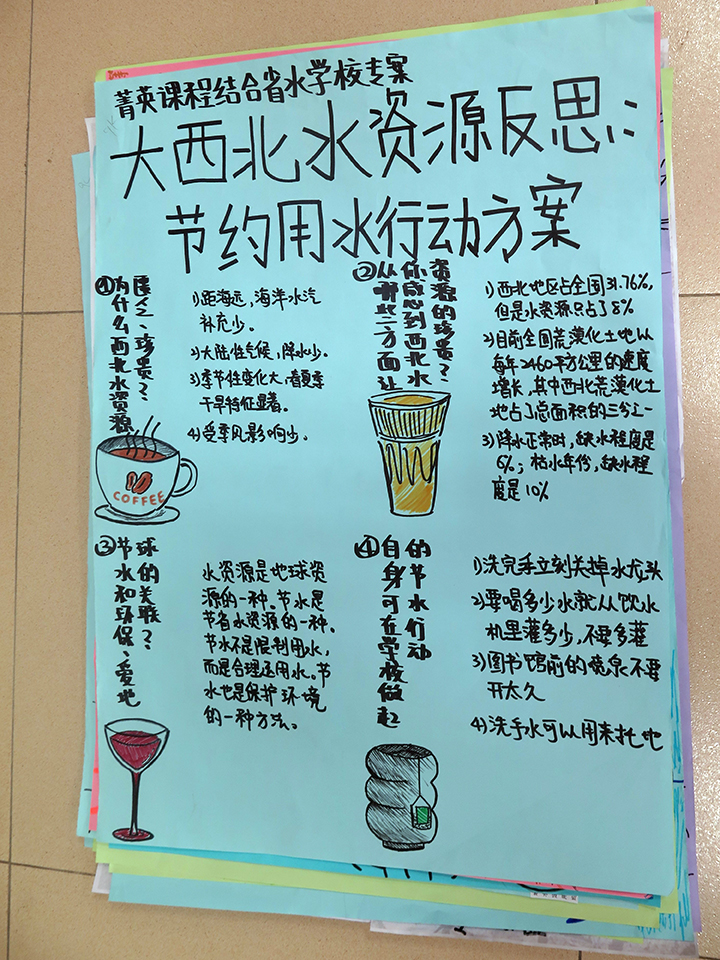 菁英课程结合省水学校专案
大西北水资源反思:
节约用水行动方案
①为什么西北水资源
匮乏、珍贵?
1)距海远，海洋水汽
补充少。
2)大陆性气候，降水少。
3)季节性变化大，春夏季
干旱特征显著。
4)受季风影响少。
COFFEE
②从哪些方面让
你感到西北水
资源的珍贵?
1)西北地区占全国31.76%，
但是水资源只占了8%
2)目前全国荒漠化土地以
每年2460平方公里的速度
增长，其中西北荒漠化土
地占了总面积的三分之一
3)降水正常时，缺水程度是
6%；枯水年份，缺水程
度是10%
③节水和环保、爱地
球的关联?
水资源是地球资
源的一种。节水是
节省水资源的一种。
节水不是限制用水，
而是合理运用水。节
水也是保护环境
的一种方法。
④自身可在学校做起
的节水行动
1)洗完手立刻关掉水龙头
2)要喝多少水就从饮水
机里灌多少，不要多灌
3)图书馆前的泉不要
开太久
4)洗手水可以用来拖地